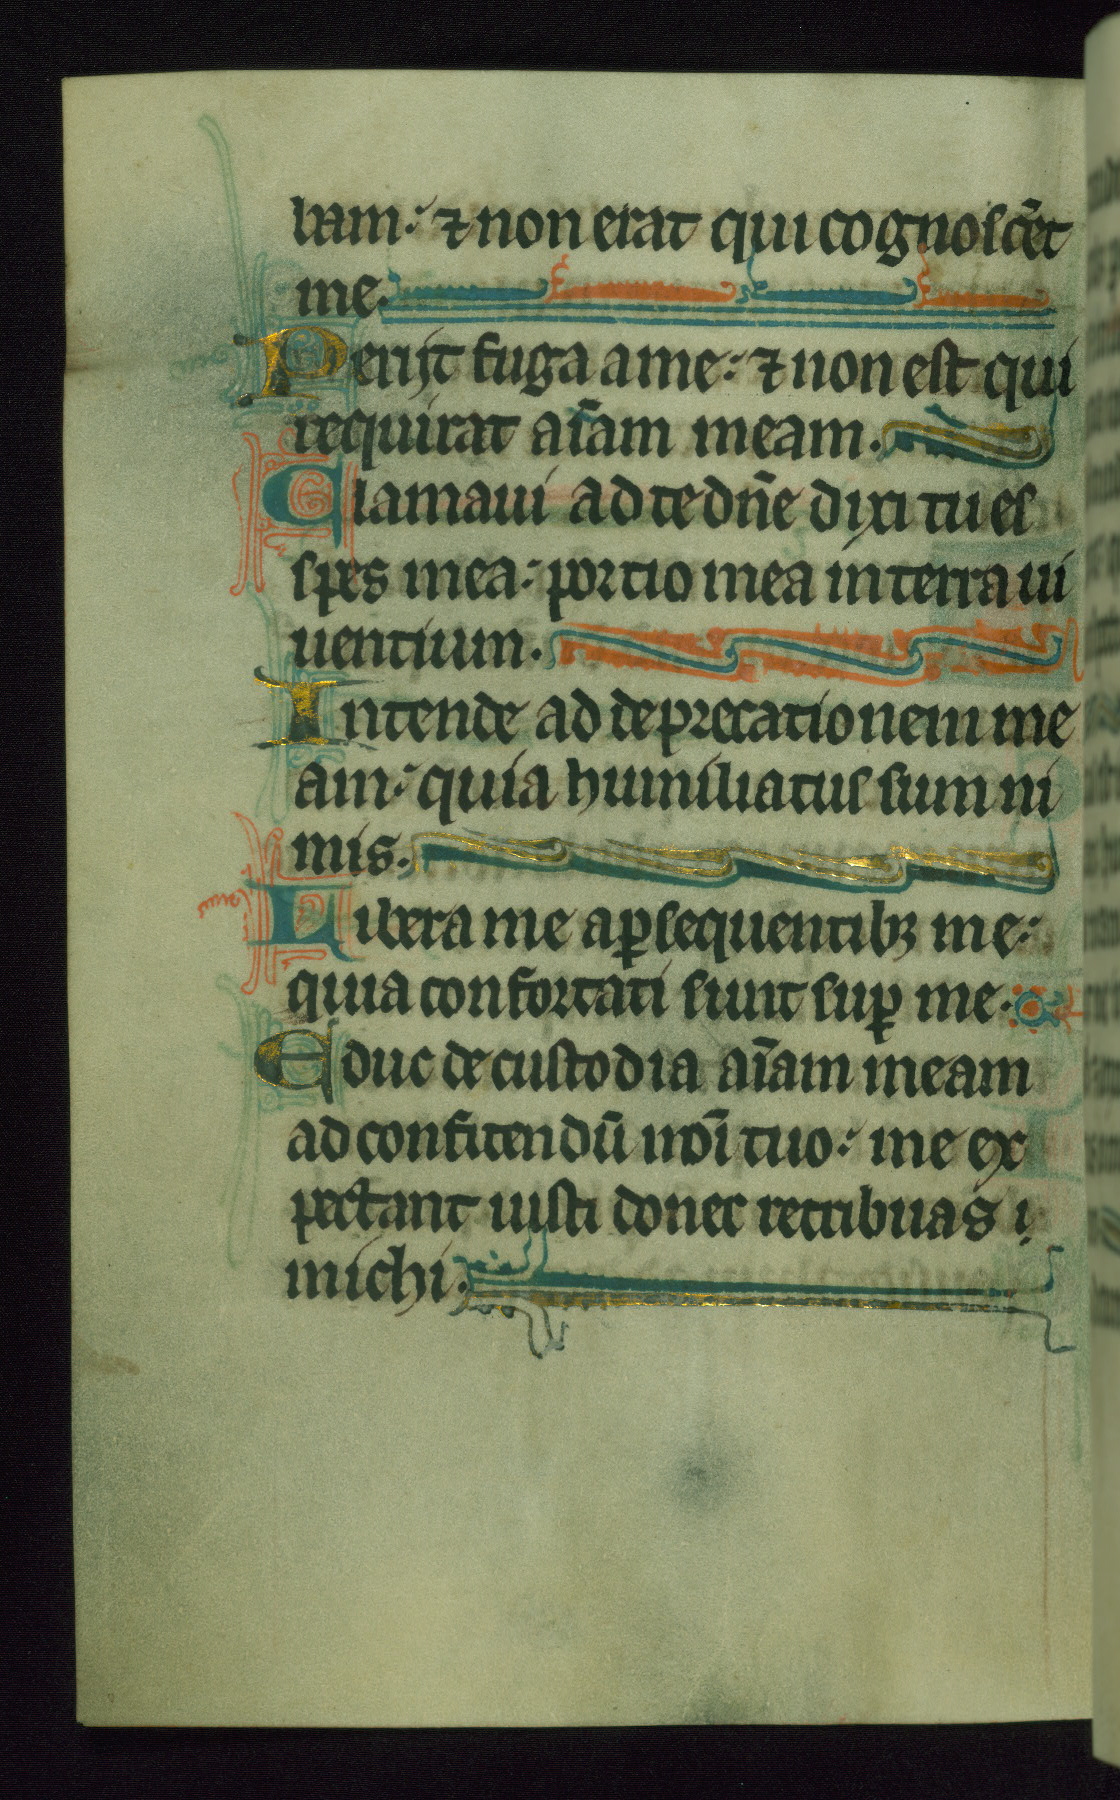 bam: ⁊ non erat qui cognosc̄et
me.
Perijt fuga a me: ⁊ non est qui
requirat aı̄am meam.
Clamaui ad te dn̄e dixi tu es
spes mea: portio mea in terra ui
uentium.
Intende ad deprecationem me
am: quia humiliatus sum ni
mis.
Libera me a ꝑsequentibꝫ me:
quia confortati sunt suꝑ me.
Educ de custodia aı̄am meam
ad confitendū noı̄ tuo: me ex
pectant iusti donec retribuas
michi.